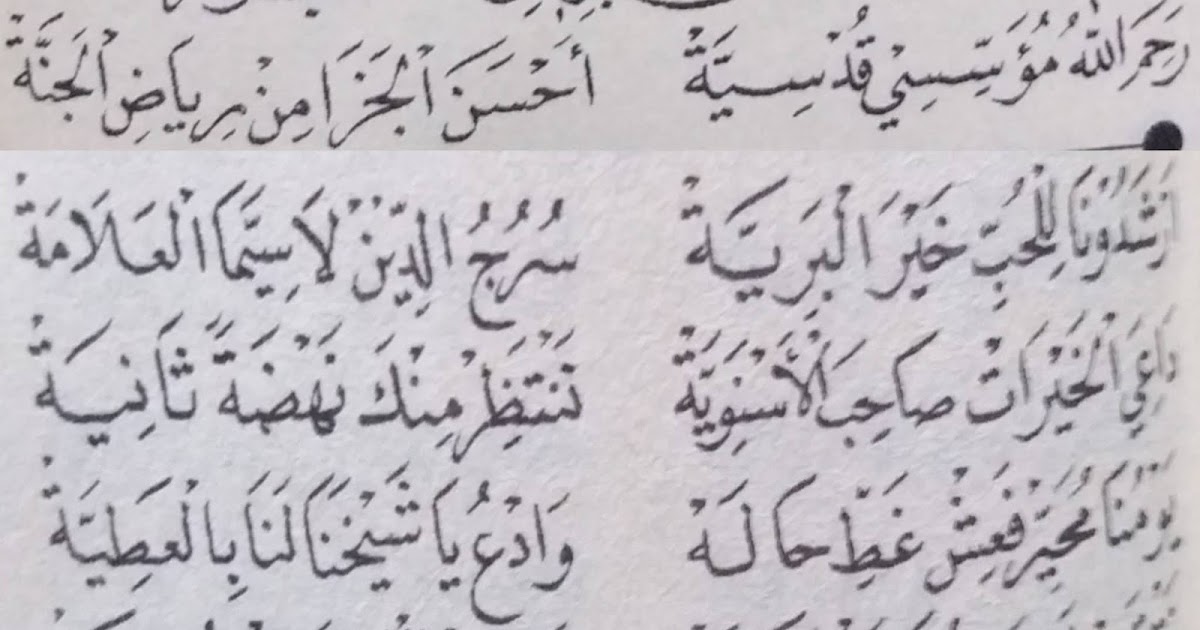 رَحِمَ اللهُ مُؤَسِّسِيْ قُدْسِيَّةْ أَحْسَنَ الْجَزَا مِنْ رِيَاضِ الْجَنَّةْ
اَرْشَدُوْنَا لِلْحُبِّ خَيْرَ الْبَرِيَّةْ سُرُجُ الدِّيْنِ لَاسِيَّمَا الْعَلَامَةْ
دَاعِيَ الْخَيْرَاتْ صَاحِبَ الْأَسْنِوِيَّةْ تَنْتَظِرْ مِنْكَ نَهْضَةً ثَانِيَةْ
يَوْمُنَا مُحَيِّرْ فَعِشْ غَطِّ حَالَهْ وَادْعُ يَا شَيْخَنَا لَنَا بِالْعَطِيَّةْ